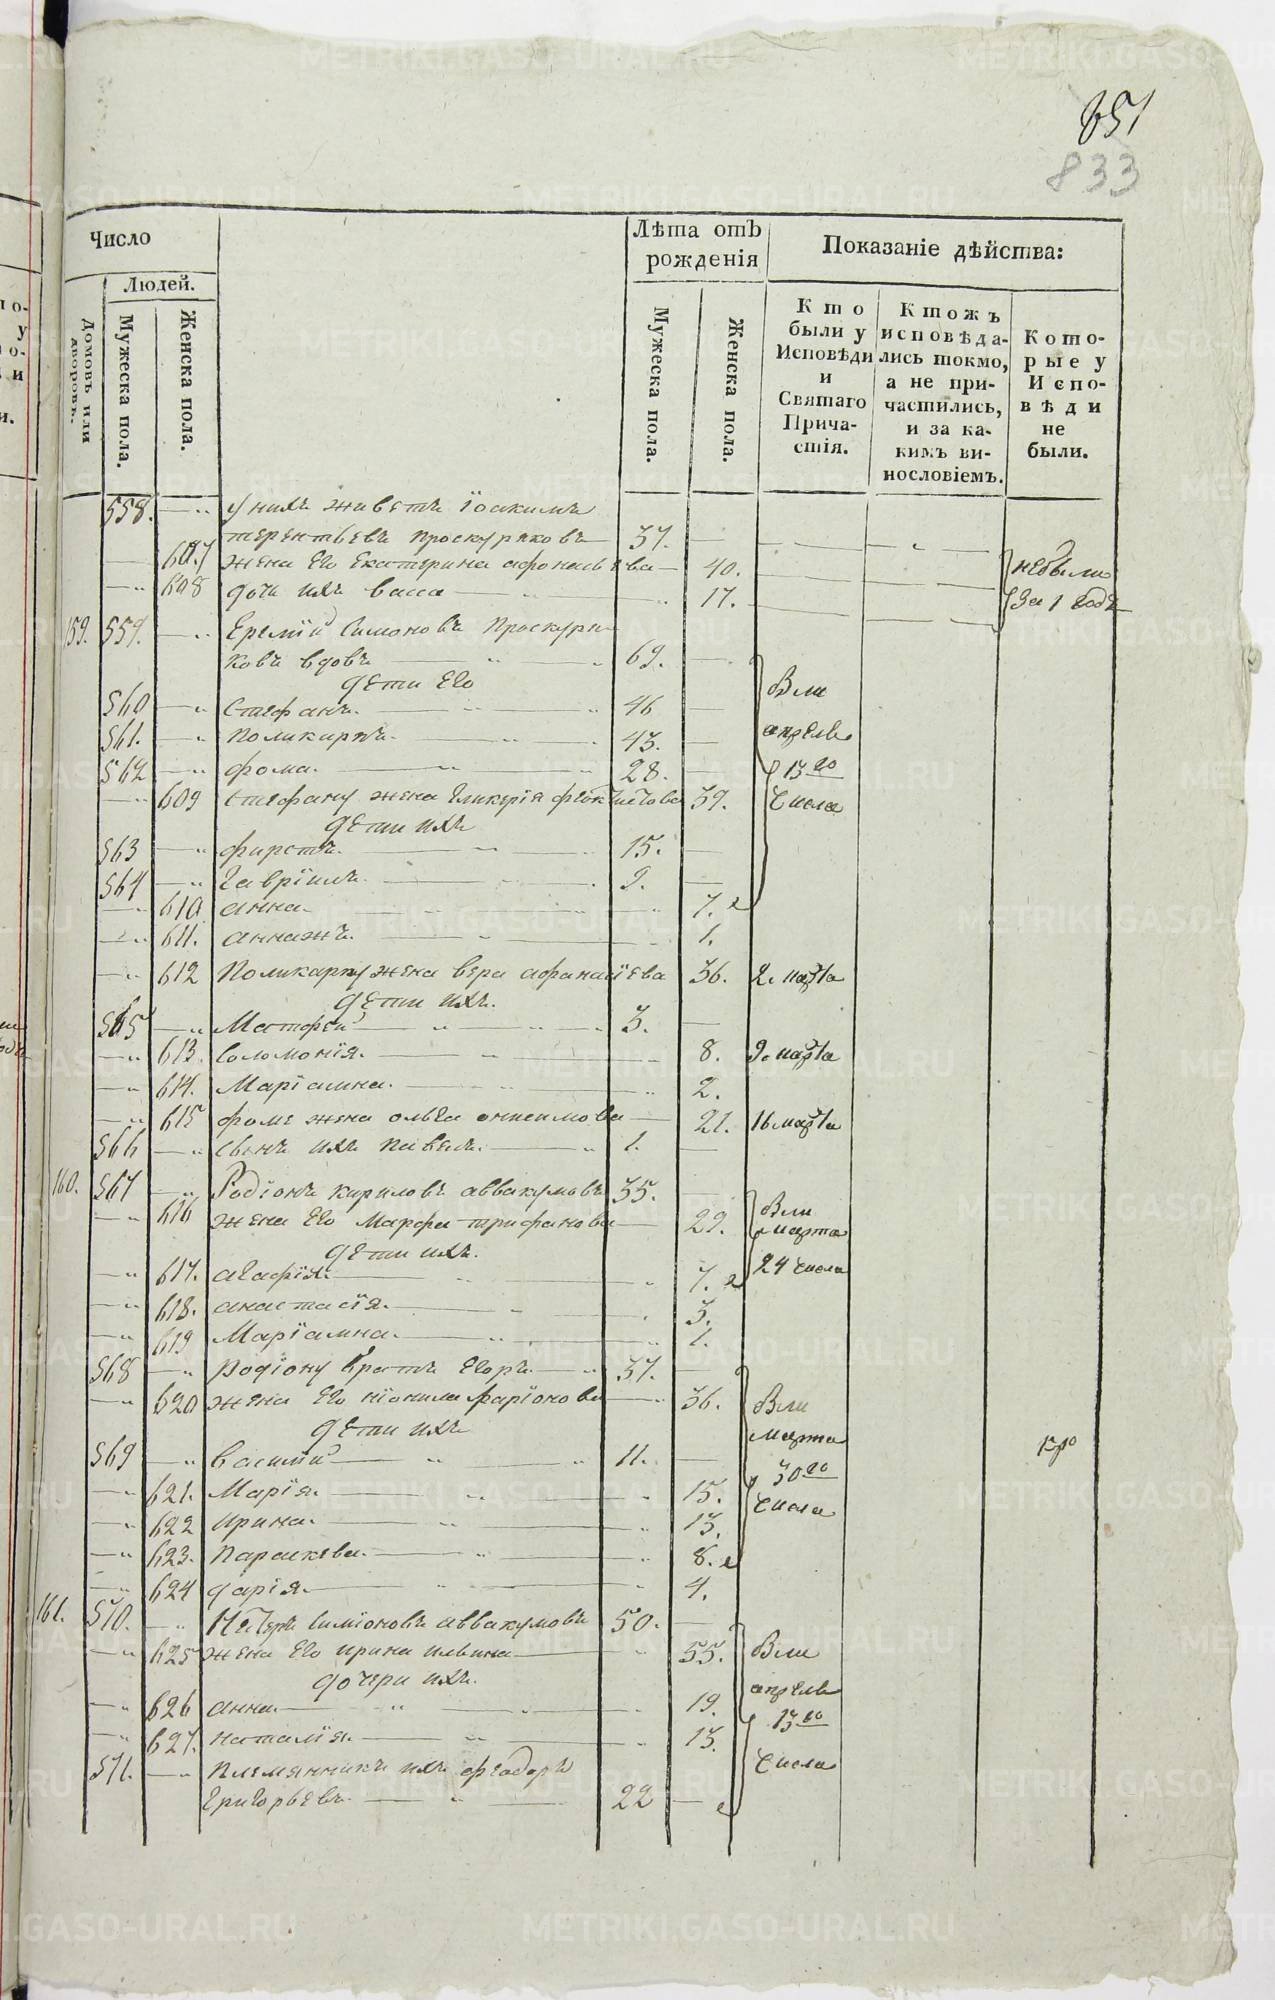 851
833
Число
Людей.
Домовъ или дворовъ.
Мужеска пола.
Женска пола.
Лѣта отъ рожденія
Мужеска пола.
Женска пола.
Показаніе дѣйства:
Кто были у Исповѣди и Святаго Прича- стія.
Ктожъ исповѣда- лись токмо, а не при- частились, и за ка- кимъ ви- нословіемъ.
Кото- рые у Испо- вѣди не были.
558. у нихъ живетъ Іоакимъ
терентьевъ проскуряковъ 37.
607 жена его екатерина афонасьева 40. небыли
608 дочь ихъ васса 17. За 1 годъ
159. 559. Еремѣй Симоновъ Проскуря-
ковъ вдовъ 69.
дети его Вли
560 Стефанъ. 46
561. поликарпъ. 43. апрѣле
562 фома. 28. 13го
609 Стефану жена гликерія феоктистова 39. числа
дети ихъ
563 фирстъ. 15.
564 гавріилъ. 9.
610 анна. 7.
611. аннажъ. 1.
612 поликарпу жена вера афанасіева 36. 2. марта
дети ихъ.
565 Матфей 3.
613. соломонія. 8. 9. марта
614. Маріамна. 2.
615 фоме жена ольга онисимова 21. 16 марта
566 сынъ ихъ павелъ. 1.
160. 567 Родіонъ кириловъ аввакумовъ 35.
616 жена его Марфа трифанова 29. Вли марта
дети ихъ.
617. агафія. 7. 24 числа
618. анастасія. 3.
619 Маріамна. 1.
568 Родіону братъ егоръ 37.
620 жена его нионила фаріонова 36. Вли
дети ихъ марта
569 василий 11. 30го
621. Марія. 15. числа
622 ирина. 13.
623. параскева. 8.
624 дарія. 4.
161. 570. Петръ симіоновъ аввакумовъ 50.
625 жена его ирина ильина 55. Вли
дочери ихъ. апрѣле
626 анна. 19. 13го
627. наталія. 13.
571. племянникъ ихъ феодоръ числа
григорьевъ. 22
METRIKI.GASO-URAL.RU